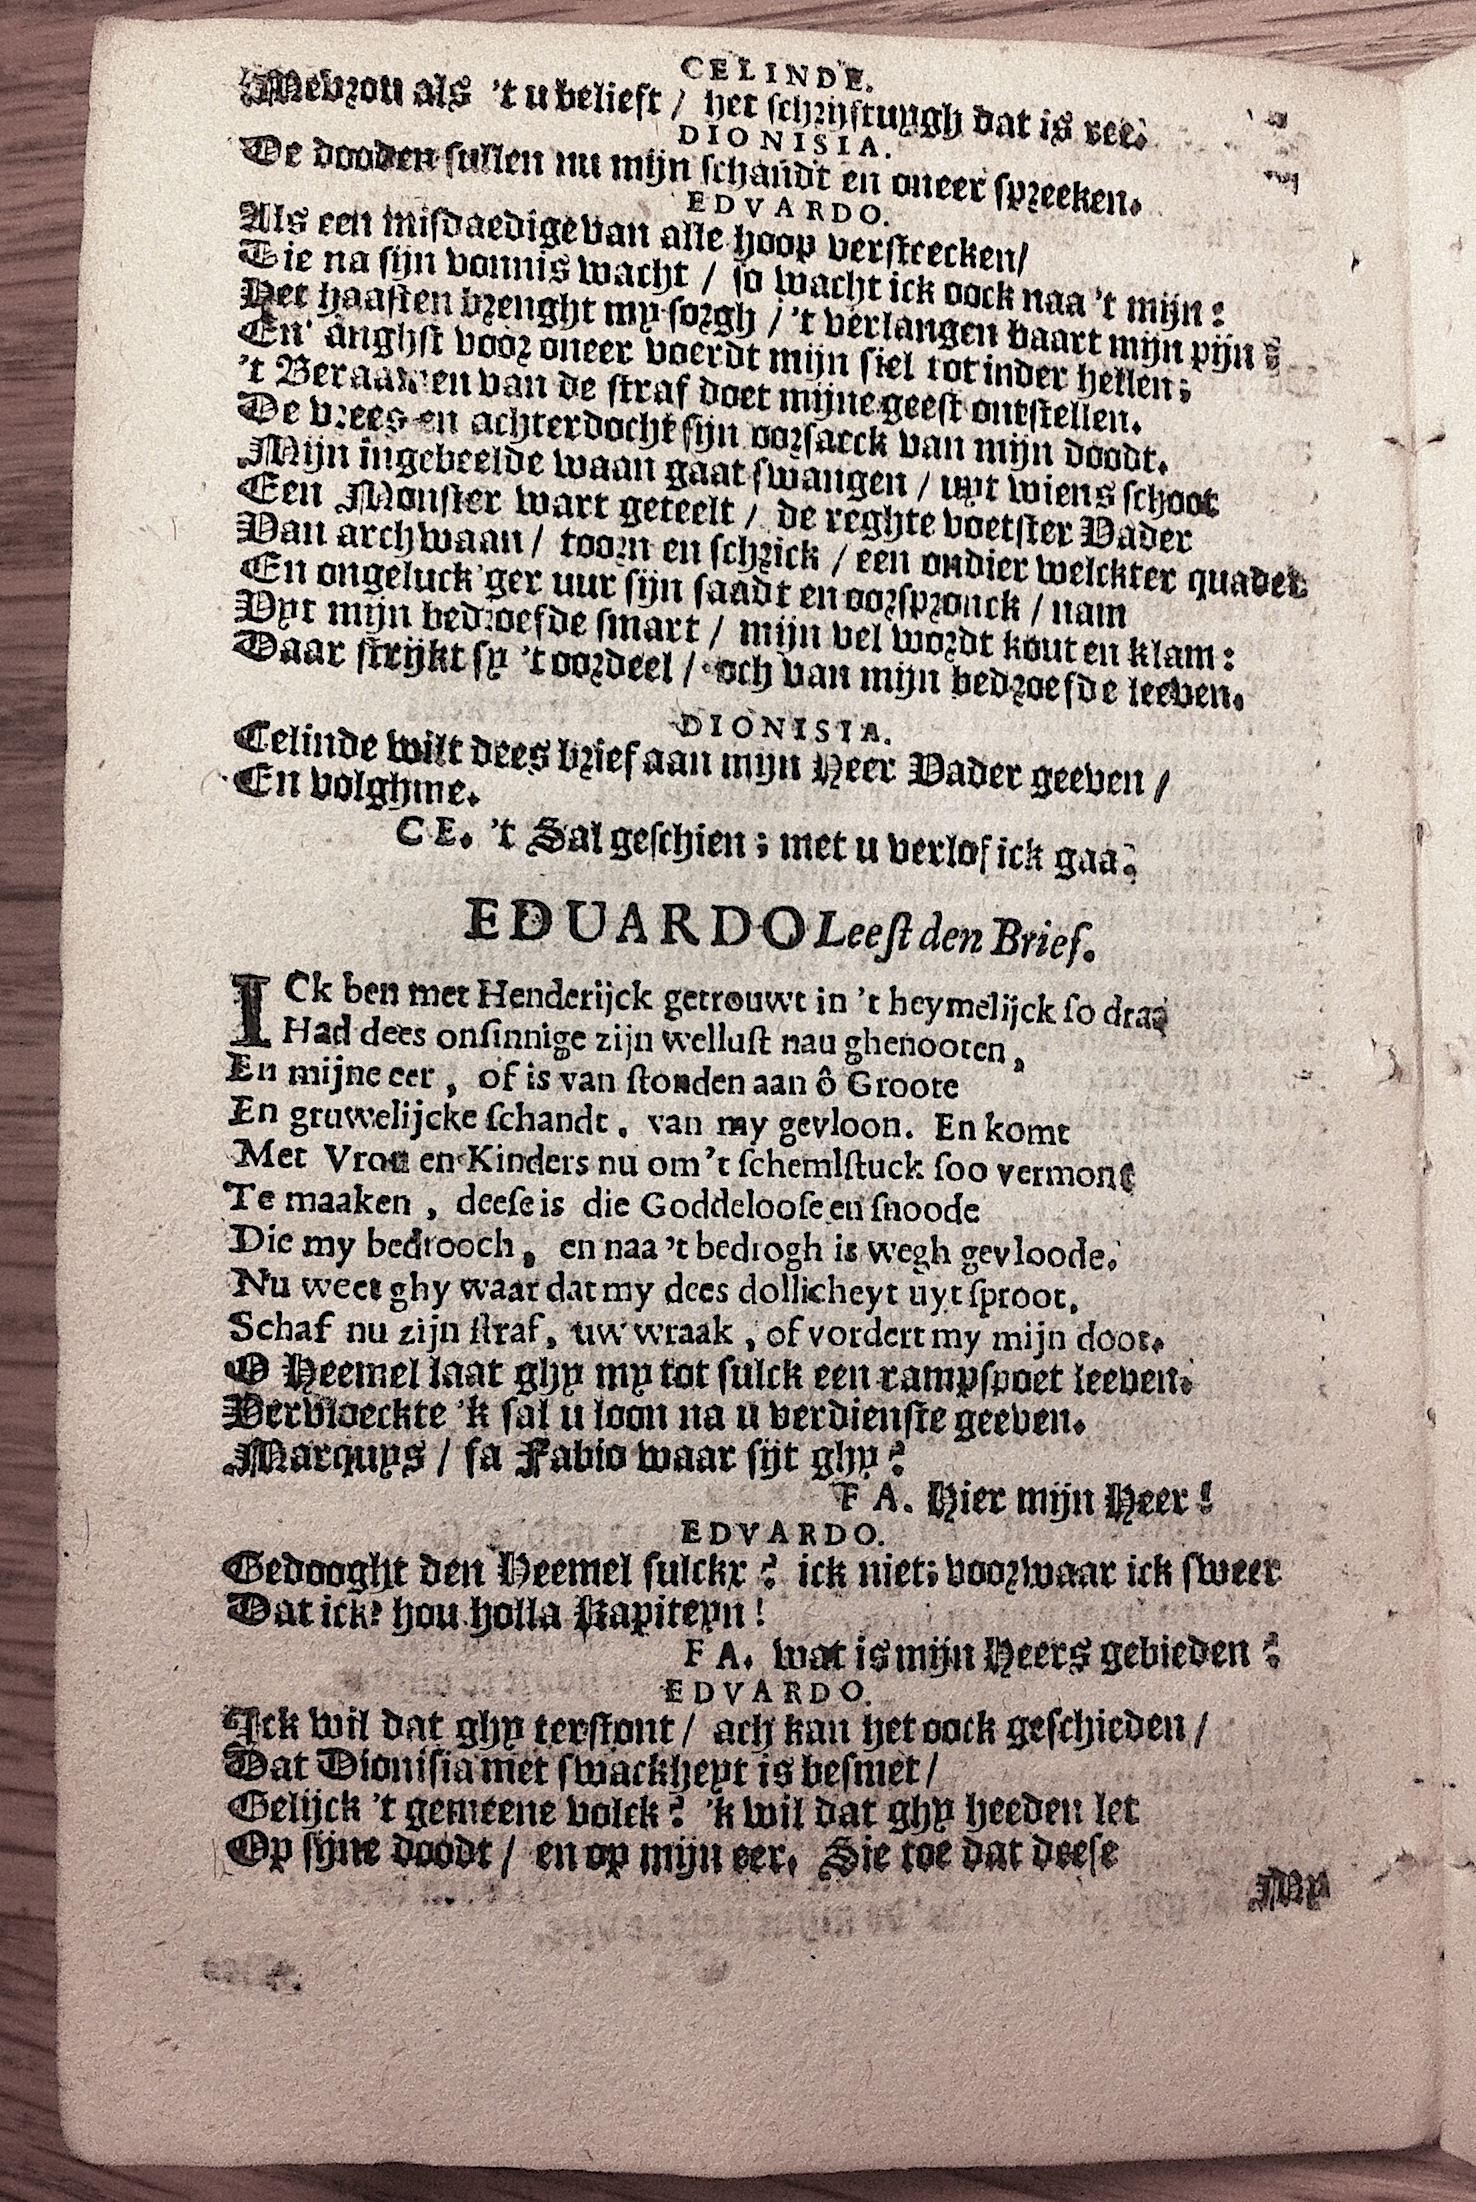 CELINDE.
Mevrou als 't u belieft / het schrijftuygh dat is ree.
DIONISIA.
De dooden sullen nu mijn schandt en oneer spreeken.
EDVARDO.
Als een misdaedige van alle hoop versteecken /
Die na sijn vonnis wacht / so wacht ick oock naa 't mijn:
Het haasten brenght my sorgh / 't verlangen baart mijn pijn:
En anghst voor oneer voerdt mijn siel tot inder hellen;
't Beraamen van de straf doet mijne geest ontstellen.
De vrees en achterdocht sijn oorsaeck van mijn doodt.
Mijn ingebeelde waan gaat swangen / uyt wiens schoot
Een Monster wart geteelt / de reghte voetster Vader
Van archwaan / toorn en schrick / een ondier welckter quader
En ongeluck'ger uur sijn saadt en oorspronck / nam
Uyt mijn bedroefde smart / mijn vel wordt kout en klam:
Daar strijkt sy 't oordeel / och van mijn bedroefde leeven.
DIONISIA.
Celinde wilt dees brief aan mijn Heer Vader geeven /
En volghme.
CE. 't Sal geschien; met u verlof ick gaa.
EDUARDO Leest den Brief.
ICk ben met Henderijck getrouwt in 't heymelijck so draa
Had dees onsinnige zijn wellust nau ghenooten,
En mijne eer, of is van stonden aan ô Groote
En gruwelijcke schandt. van my gevloon. En komt
Met Vrou en Kinders nu om 't schemlstuck soo vermomt
Te maaken, deese is die Goddeloose en snoode
Die my bedrooch, en naa 't bedrogh is wegh gevloode.
Nu weet ghy waar dat my dees dollicheyt uyt sproot,
Schaf nu zijn straf, uw wraak, of vordert my mijn doot.
O Heemel laat ghy my tot sulck een rampspoet leeven.
Vervloeckte 'k sal u loon na u verdienste geeven.
Marquys / sa Fabio waar sijt ghy?
FA. Hier mijn Heer!
EDVARDO.
Gedooght den Heemel sulckx? ick niet; voorwaar ick sweer
Dat ick? hou holla Kapiteyn!
FA. wat is mijn Heers gebieden?
EDVARDO.
Ick wil dat ghy terstont / ach kan het oock geschieden /
Dat Dionisia met swackheyt is besmet /
Gelijck 't gemeene volck? 'k wil dat ghy heeden let
Op sijne doodt / en op mijn eer. Sie toe dat deese
My